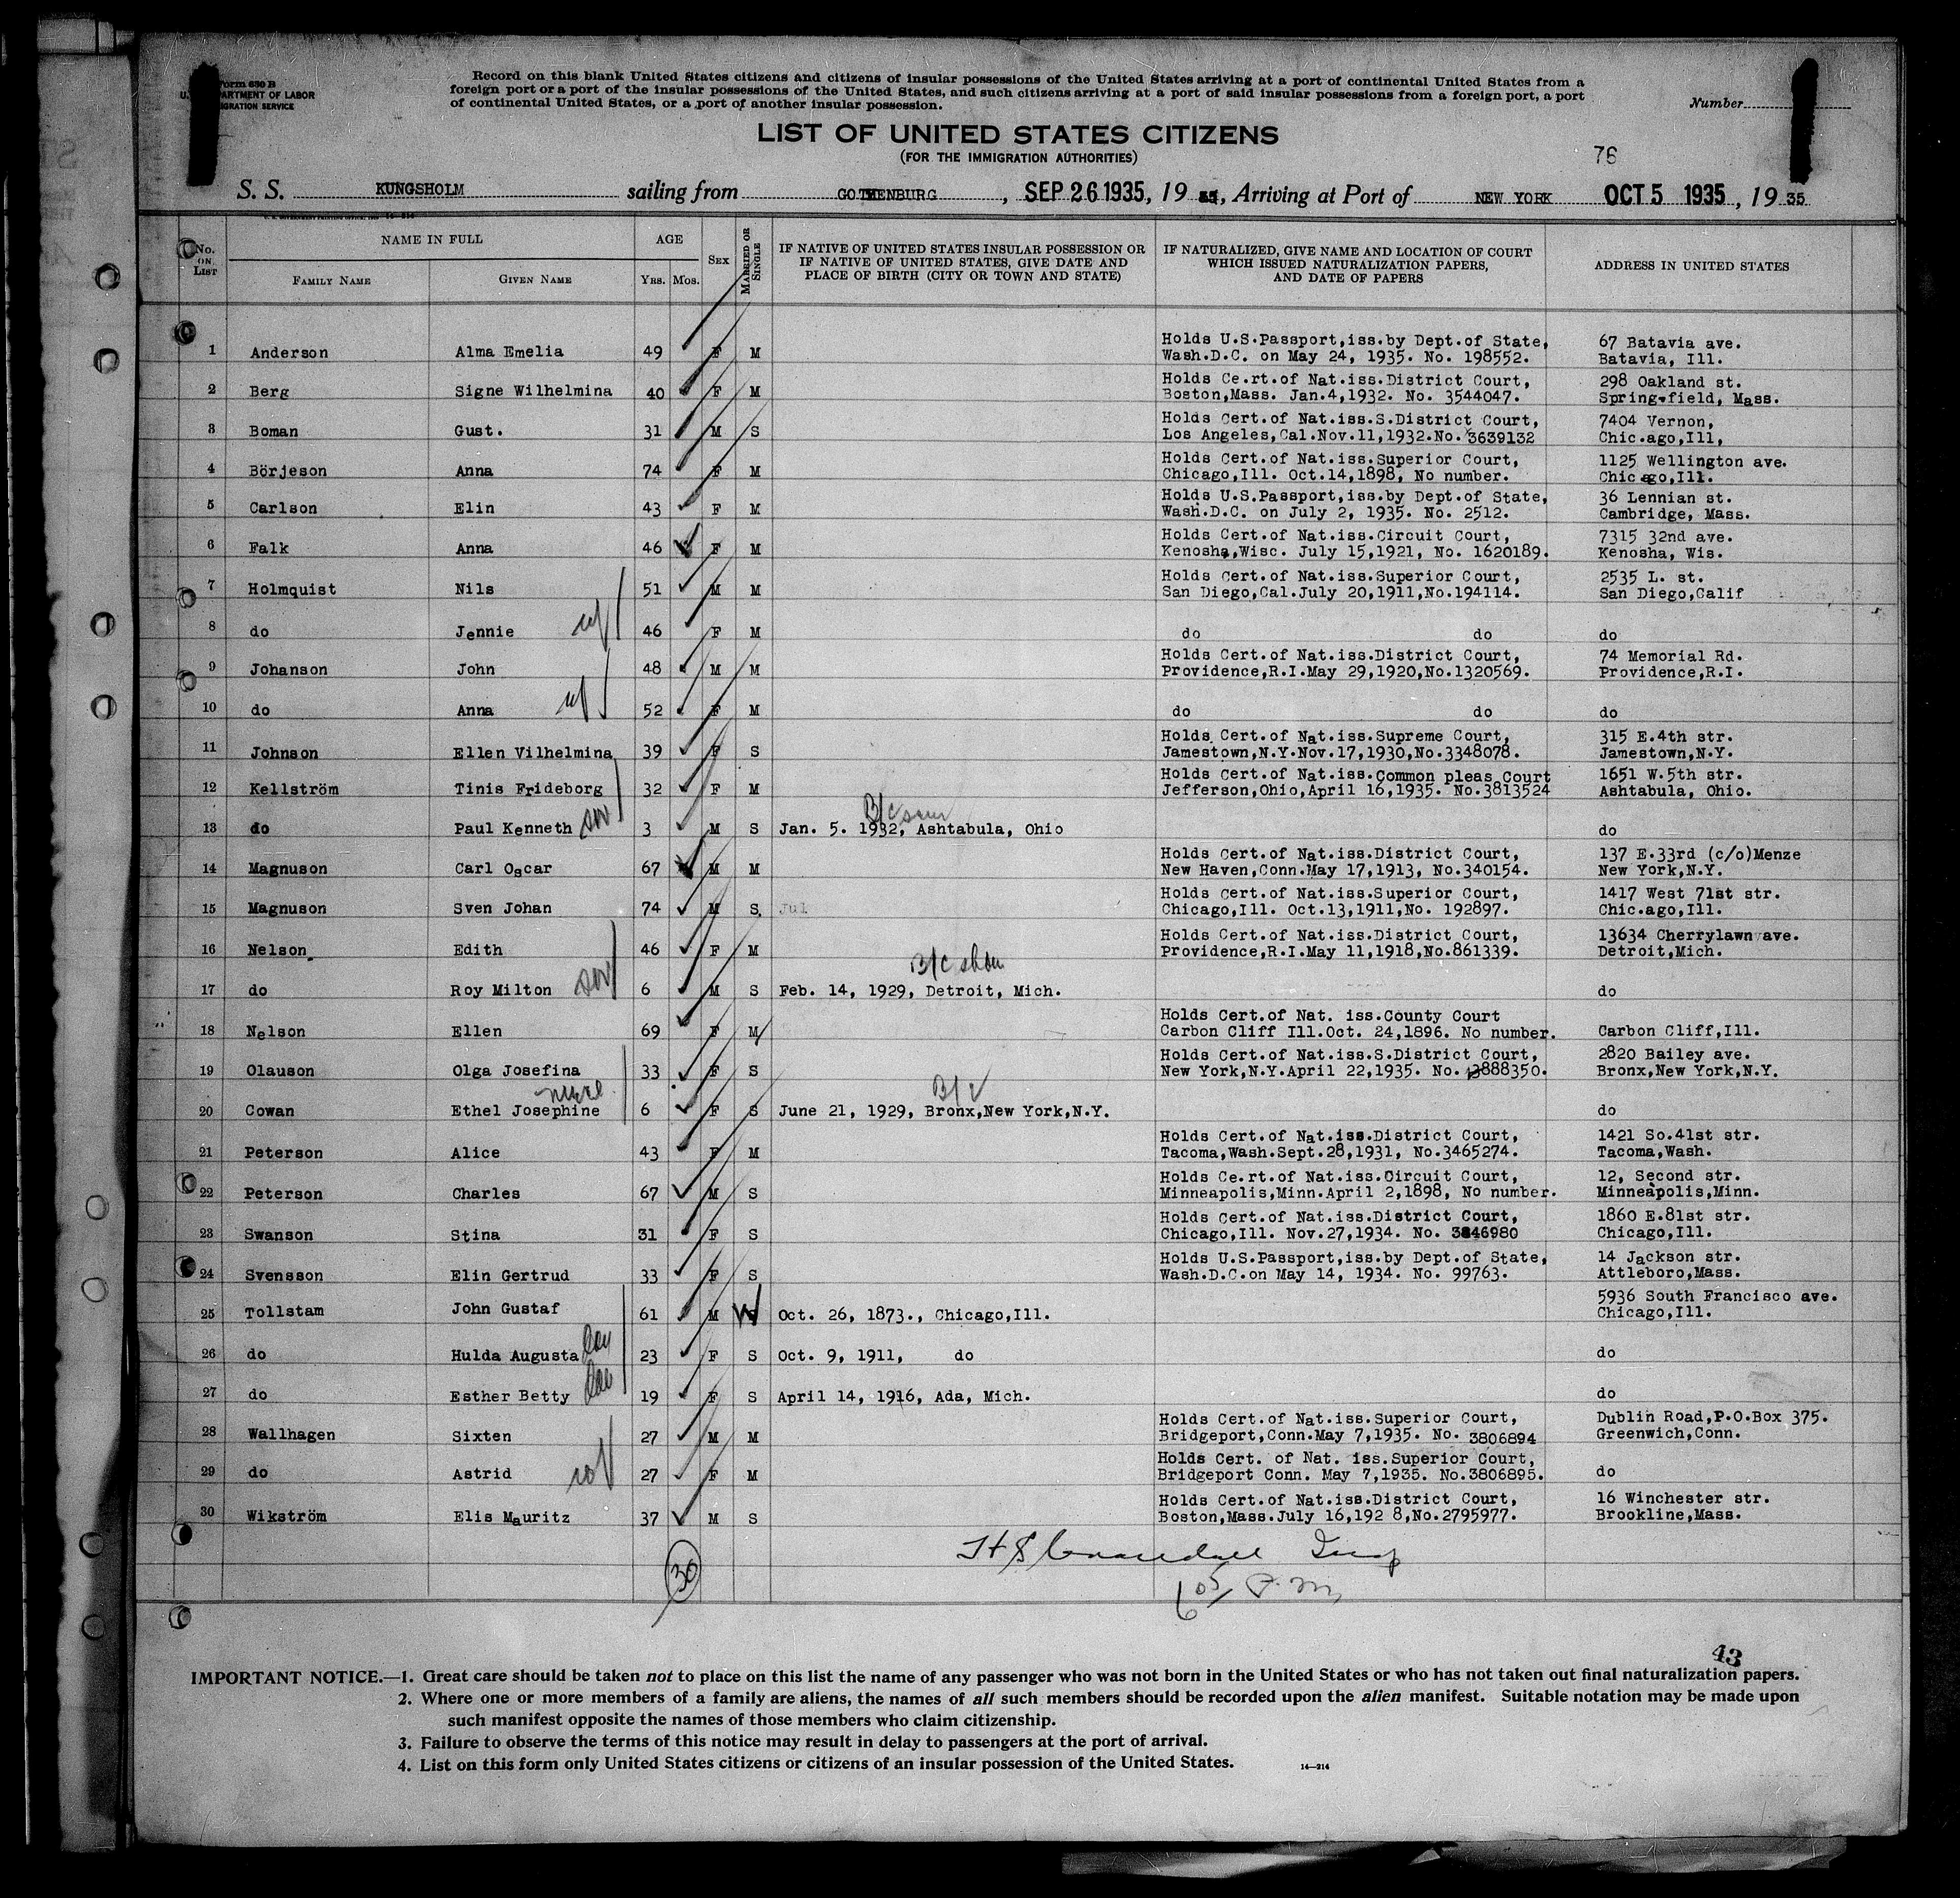 Form 630 B
U. S. DEPARTMENT OF LABOR
IMMIGRATION SERVICE
Record on this blank United States citizens and citizens of insular possessions of the United States arriving at a port of continental United States from a
foreign port or a port of the insular possessions of the United States, and such citizens arriving at a port of said insular possessions from a foreign port, a port
of continental United States, or a port of another insular possession.
Number
LIST OF UNITED STATES CITIZENS
(FOR THE IMMIGRATION AUTHORITIES)
76
S. S. KUNGSHOLM sailing from GOTHENBURG, SEP 26 1935, 19 35, Arriving at Port of NEW YORK OCT 5 1935, 19 35
No. ON LIST NAME IN FULL FAMILY NAME GIVEN NAME AGE YRS. MOS. SEX MARRIED OR SINGLE
IF NATIVE OF UNITED STATES INSULAR POSSESSION OR
IF NATIVE OF UNITED STATES, GIVE DATE AND
PLACE OF BIRTH (CITY OR TOWN AND STATE)
IF NATURALIZED, GIVE NAME AND LOCATION OF COURT
WHICH ISSUED NATURALIZATION PAPERS,
AND DATE OF PAPERS
ADDRESS IN UNITED STATES
Holds U.S.Passport,iss.by Dept.of State, 67 Batavia ave.
1 Anderson Alma Emelia 49 F M Wash.D.C. on May 24, 1935. No. 198552. Batavia, Ill.
Holds Ce.rt.of Nat.iss.District Court, 298 Oakland st.
2 Berg Signe Wilhelmina 40 F M Boston,Mass. Jan.4,1932. No. 3544047. Springfield, Mass.
Holds Cert.of Nat.iss.S.District Court, 7404 Vernon,
3 Boman Gust. 31 M S Los Angeles,Cal.Nov.11,1932.No.3639132 Chic.ago,Ill,
Holds Cert.of Nat.iss.Superior Court, 1125 Wellington ave.
4 Börjeson Anna 74 F M Chicago,Ill. Oct.14,1898, No number. Chicago,Ill.
Holds U.S.Passport,iss.by Dept.of State, 36 Lennian st.
5 Carlson Elin 43 F M Wash.D.C. on July 2, 1935. No. 2512. Cambridge, Mass.
Holds Cert.of Nat.iss.Circuit Court, 7315 32nd ave.
6 Falk Anna 46 F M Kenosha,Wisc. July 15,1921, No. 1620189. Kenosha, Wis.
Holds Cert.of Nat.iss.Superior Court, 2535 L. st.
7 Holmquist Nils 51 M M San Diego,Cal.July 20,1911,No.194114. San Diego,Calif
8 do Jennie wf 46 F M do do do
Holds Cert.of Nat.iss.District Court, 74 Memorial Rd.
9 Johanson John 48 M M Providence,R.I.May 29,1920,No.1320569. Providence,R.I.
10 do Anna wf 52 F M do do do
Holds Cert.of Nat.iss.Supreme Court, 315 E.4th str.
11 Johnson Ellen Vilhelmina 39 F S Jamestown,N.Y.Nov.17,1930,No.3348078. Jamestown,N.Y.
Holds Cert.of Nat.iss.Common pleas Court 1651 W.5th str.
12 Kellström Tinis Frideborg 32 F M Jefferson,Ohio,April 16,1935. No.3813524 Ashtabula, Ohio.
B/c
13 do Paul Kenneth son 3 M S Jan. 5. 1932, Ashtabula, Ohio do
Holds Cert.of Nat.iss.District Court, 137 E.33rd (c/o)Menze
14 Magnuson Carl Oscar 67 M M New Haven,Conn.May 17,1913, No.340154. New York,N.Y.
Holds Cert.of Nat.iss.Superior Court, 1417 West 71st str.
15 Magnuson Sven Johan 74 M S. Jul Chicago,Ill. Oct.13,1911,No. 192897. Chic.ago,Ill.
Holds Cert.of Nat.iss.District Court, 13634 Cherrylawn ave.
16 Nelson Edith 46 F M Providence,R.I.May 11,1918,No.861339. Detroit,Mich.
B/C shown
17 do Roy Milton son 6 M S Feb. 14, 1929, Detroit, Mich. do
Holds Cert.of Nat. iss.County Court
18 Nelson Ellen 69 F M Carbon Cliff Ill.Oct. 24,1896. No number. Carbon Cliff,Ill.
Holds Cert.of Nat.iss.S.District Court, 2820 Bailey ave.
19 Olauson Olga Josefina 33 F S New York,N.Y.April 22,1935. No. 3888350. Bronx,New York,N.Y.
niece B/c
20 Cowan Ethel Josephine 6 F S June 21, 1929, Bronx,New York,N.Y. do
Holds Cert.of Nat.iss.District Court, 1421 So.41st str.
21 Peterson Alice 43 F M Tacoma,Wash.Sept.28,1931, No.3465274. Tacoma,Wash.
Holds Ce.rt.of Nat.iss.Circuit Court, 12, Second str.
22 Peterson Charles 67 M S Minneapolis,Minn.April 2,1898, No number. Minneapolis,Minn.
Holds Cert.of Nat.iss.District Court, 1860 E.81st str.
23 Swanson Stina 31 F S Chicago,Ill. Nov.27,1934. No. 3846980 Chicago,Ill.
Holds U.S.Passport,iss.by Dept.of State, 14 Jackson str.
24 Svensson Elin Gertrud 33 F S Wash.D.C.on May 14, 1934. No. 99763. Attleboro,Mass.
5936 South Francisco ave.
25 Tollstam John Gustaf 61 M W Oct. 26, 1873., Chicago,Ill. Chicago,Ill.
26 do Hulda Augusta dau 23 F S Oct. 9, 1911, do do
27 do Esther Betty dau 19 F S April 14, 1916, Ada, Mich. do
Holds Cert.of Nat.iss.Superior Court, Dublin Road,P.O.Box 375.
28 Wallhagen Sixten 27 M M Bridgeport,Conn.May 7,1935. No. 3806894 Greenwich,Conn.
Holds Cert. of Nat. iss.Superior Court,
29 do Astrid wf 27 F M Bridgeport Conn. May 7,1935. No.3806895. do
Holds Cert.of Nat.iss.District Court, 16 Winchester str.
30 Wikström Elis Mauritz 37 M S Boston,Mass.July 16,192 8,No.2795977. Brookline,Mass.
30
605 P.M.
43
IMPORTANT NOTICE.—1. Great care should be taken not to place on this list the name of any passenger who was not born in the United States or who has not taken out final naturalization papers.
2. Where one or more members of a family are aliens, the names of all such members should be recorded upon the alien manifest. Suitable notation may be made upon
such manifest opposite the names of those members who claim citizenship.
3. Failure to observe the terms of this notice may result in delay to passengers at the port of arrival.
4. List on this form only United States citizens or citizens of an insular possession of the United States.
14—214